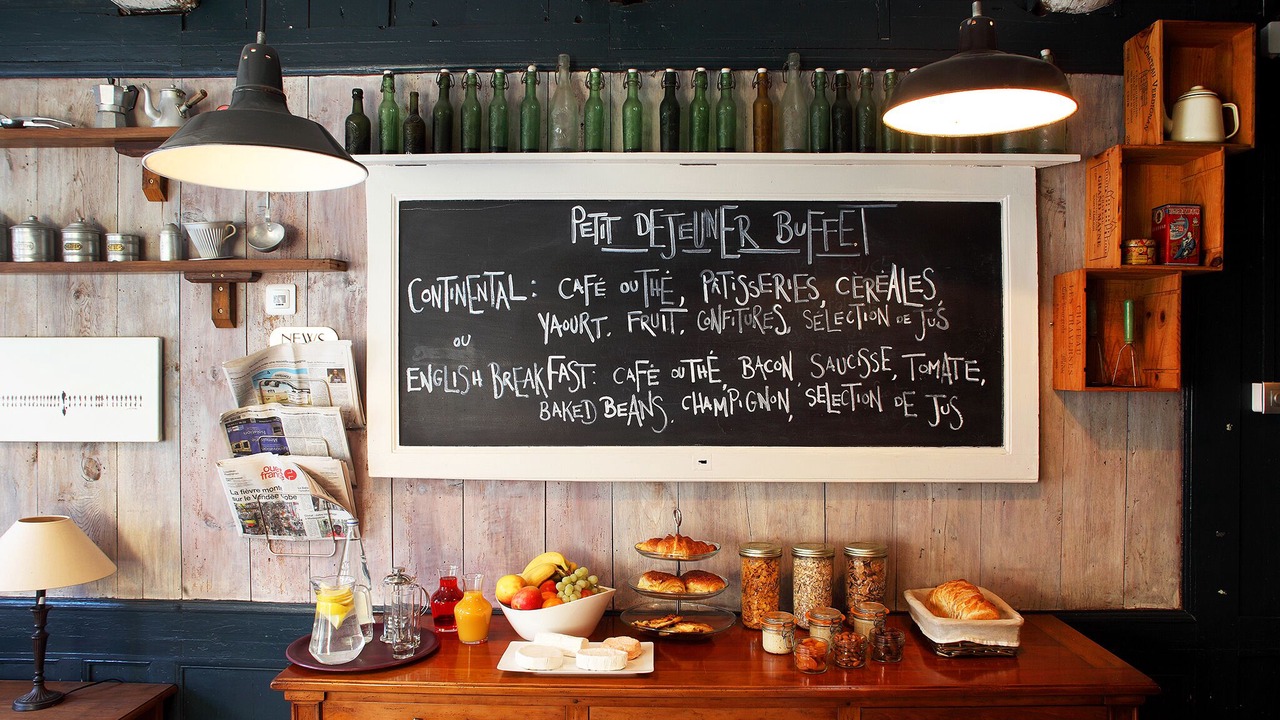 PETIT DEJEUNER BUFFET
CONTINENTAL: CAFÉ OU THÉ, PÂTISSERIES, CÉRÉALES,
YAOURT, FRUIT, CONFITURES, SÉLECTION DE JUS
OU
ENGLISH BREAKFAST: CAFÉ OU THÉ, BACON, SAUCISSE, TOMATE,
BAKED BEANS, CHAMPIGNON, SÉLECTION DE JUS
NEWS
ouest
france
La fièvre monte
sur le Vendée Globe